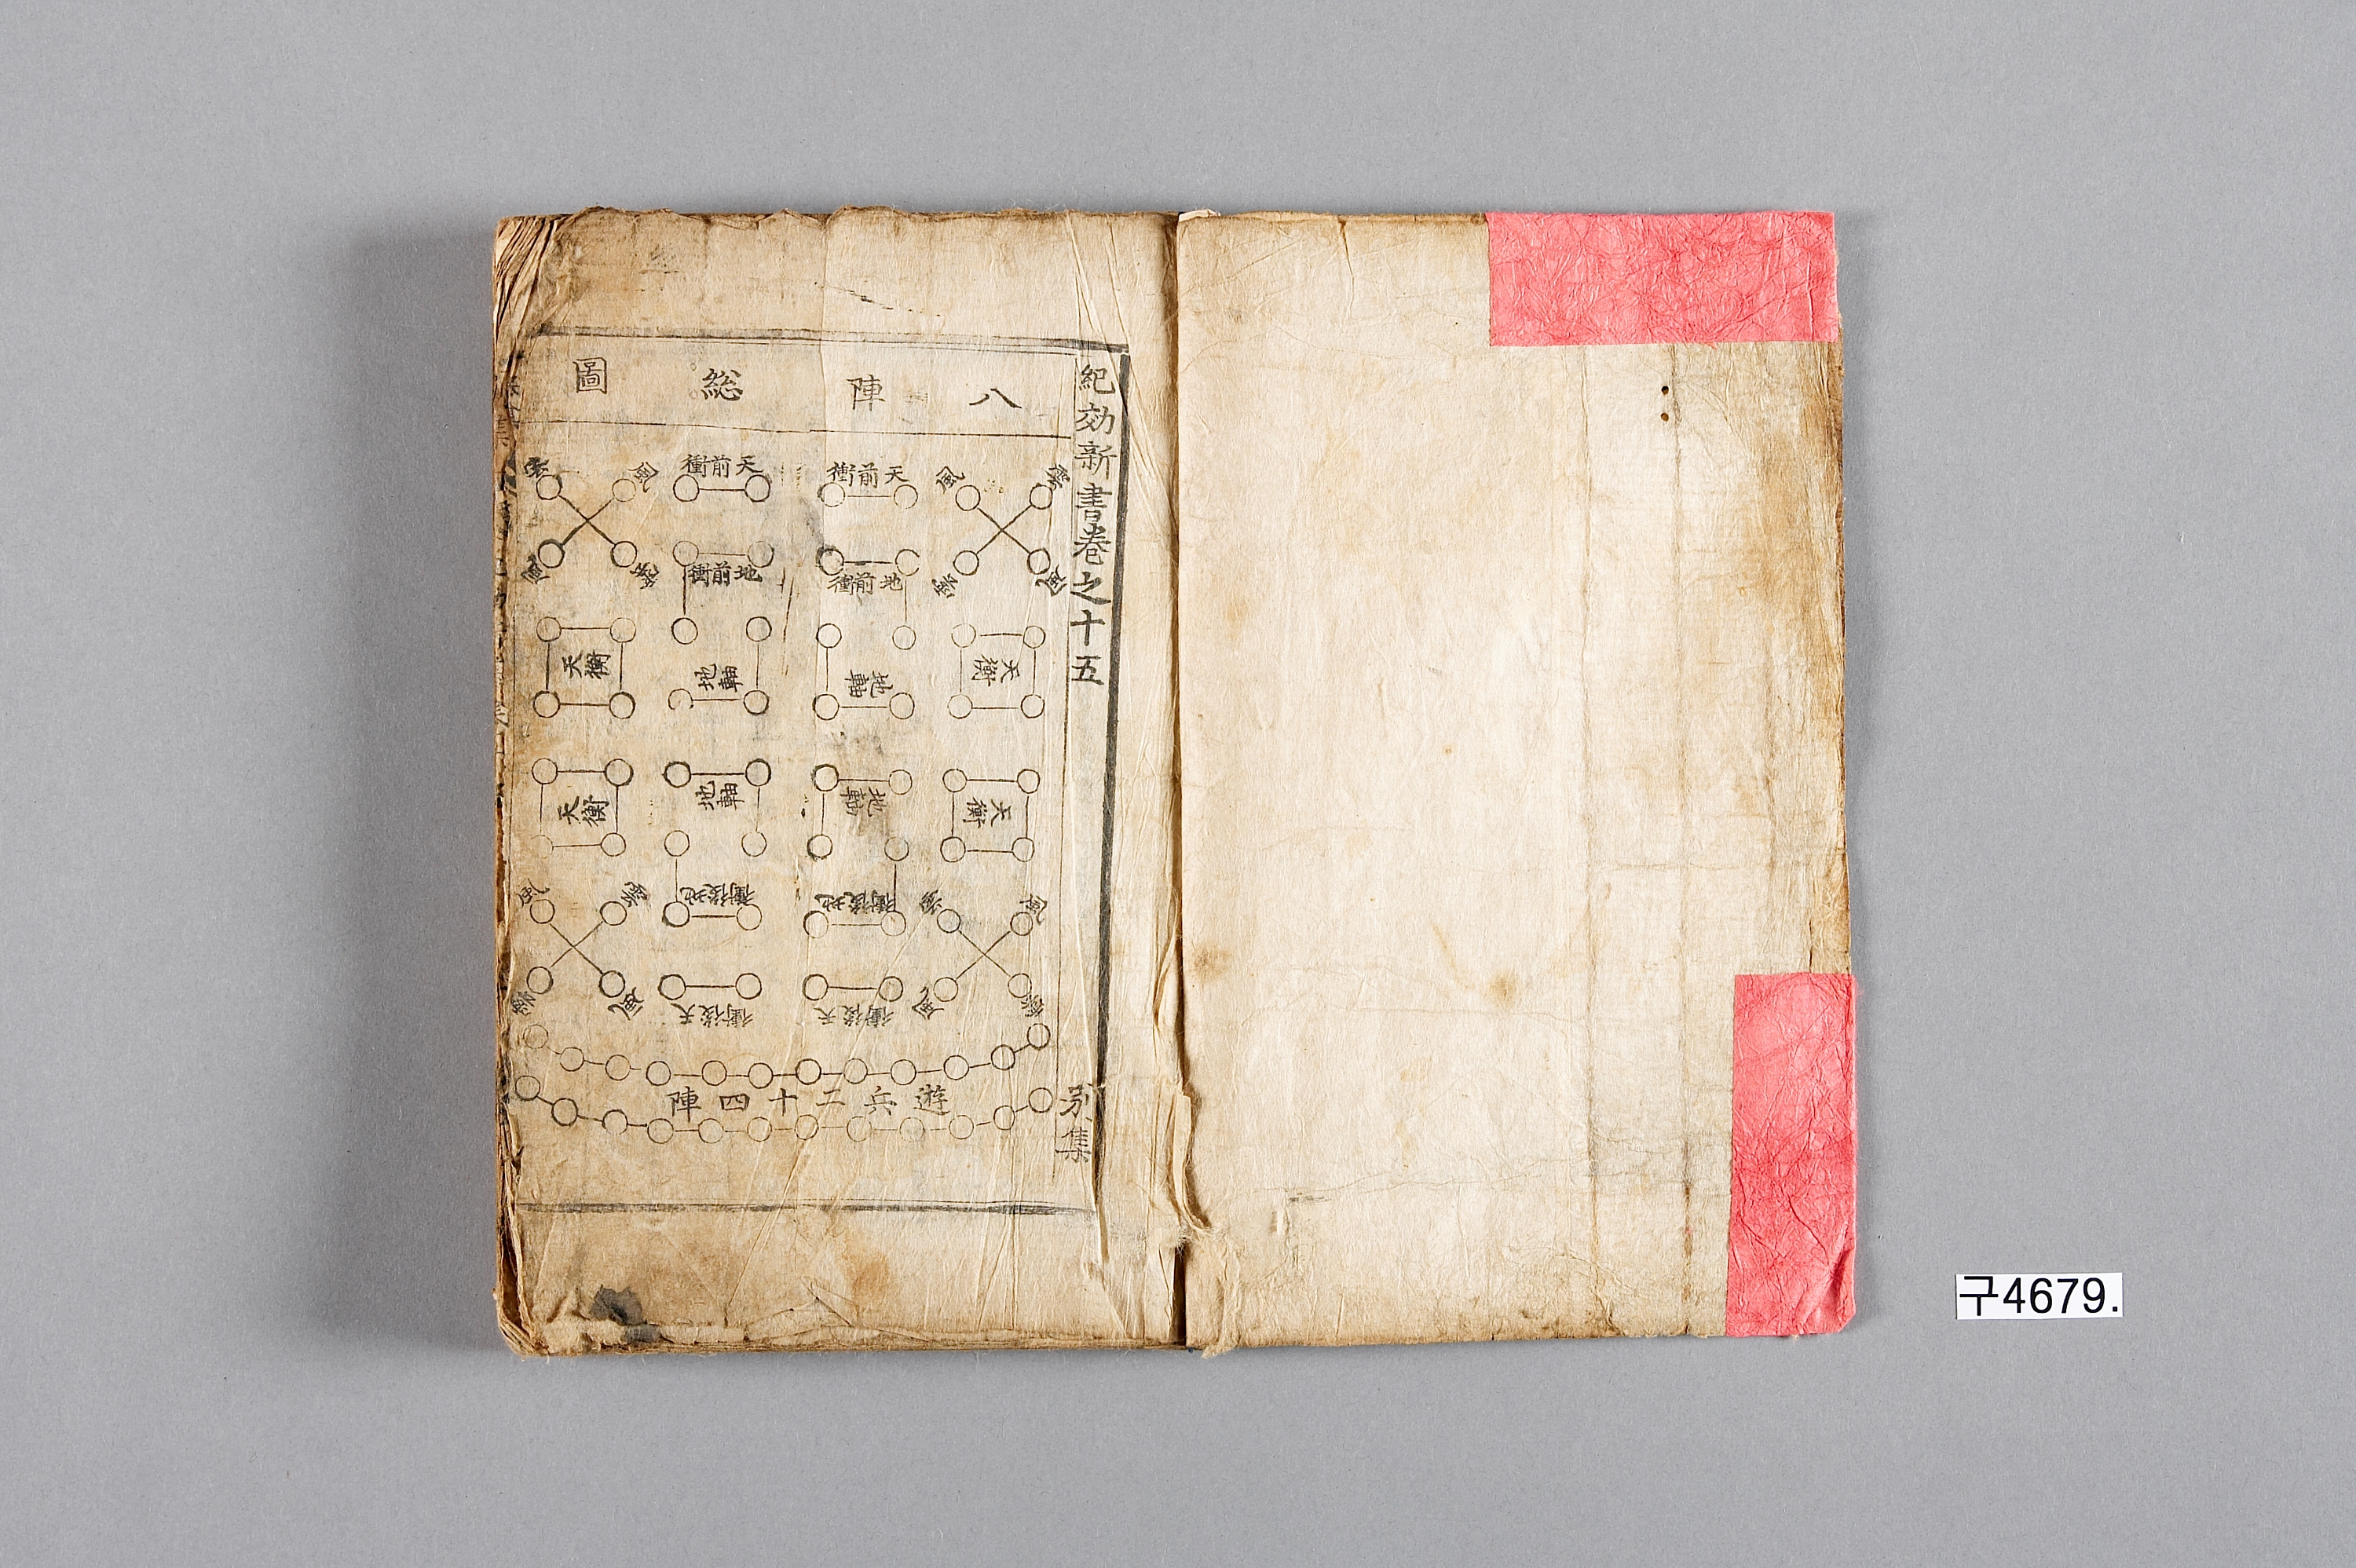 紀効新書卷之十五
別集
八陣総圖
雲 風 天前衝 天前衝 風 雲
風 雲 地前衝 地前衝 雲 風
天衡 地軸 地軸 天衡
天衡 地軸 地軸 天衡
風 雲 地後衝 地後衝 雲 風
雲 風 天後衝 天後衝 風 雲
遊兵二十四陣
구4679.